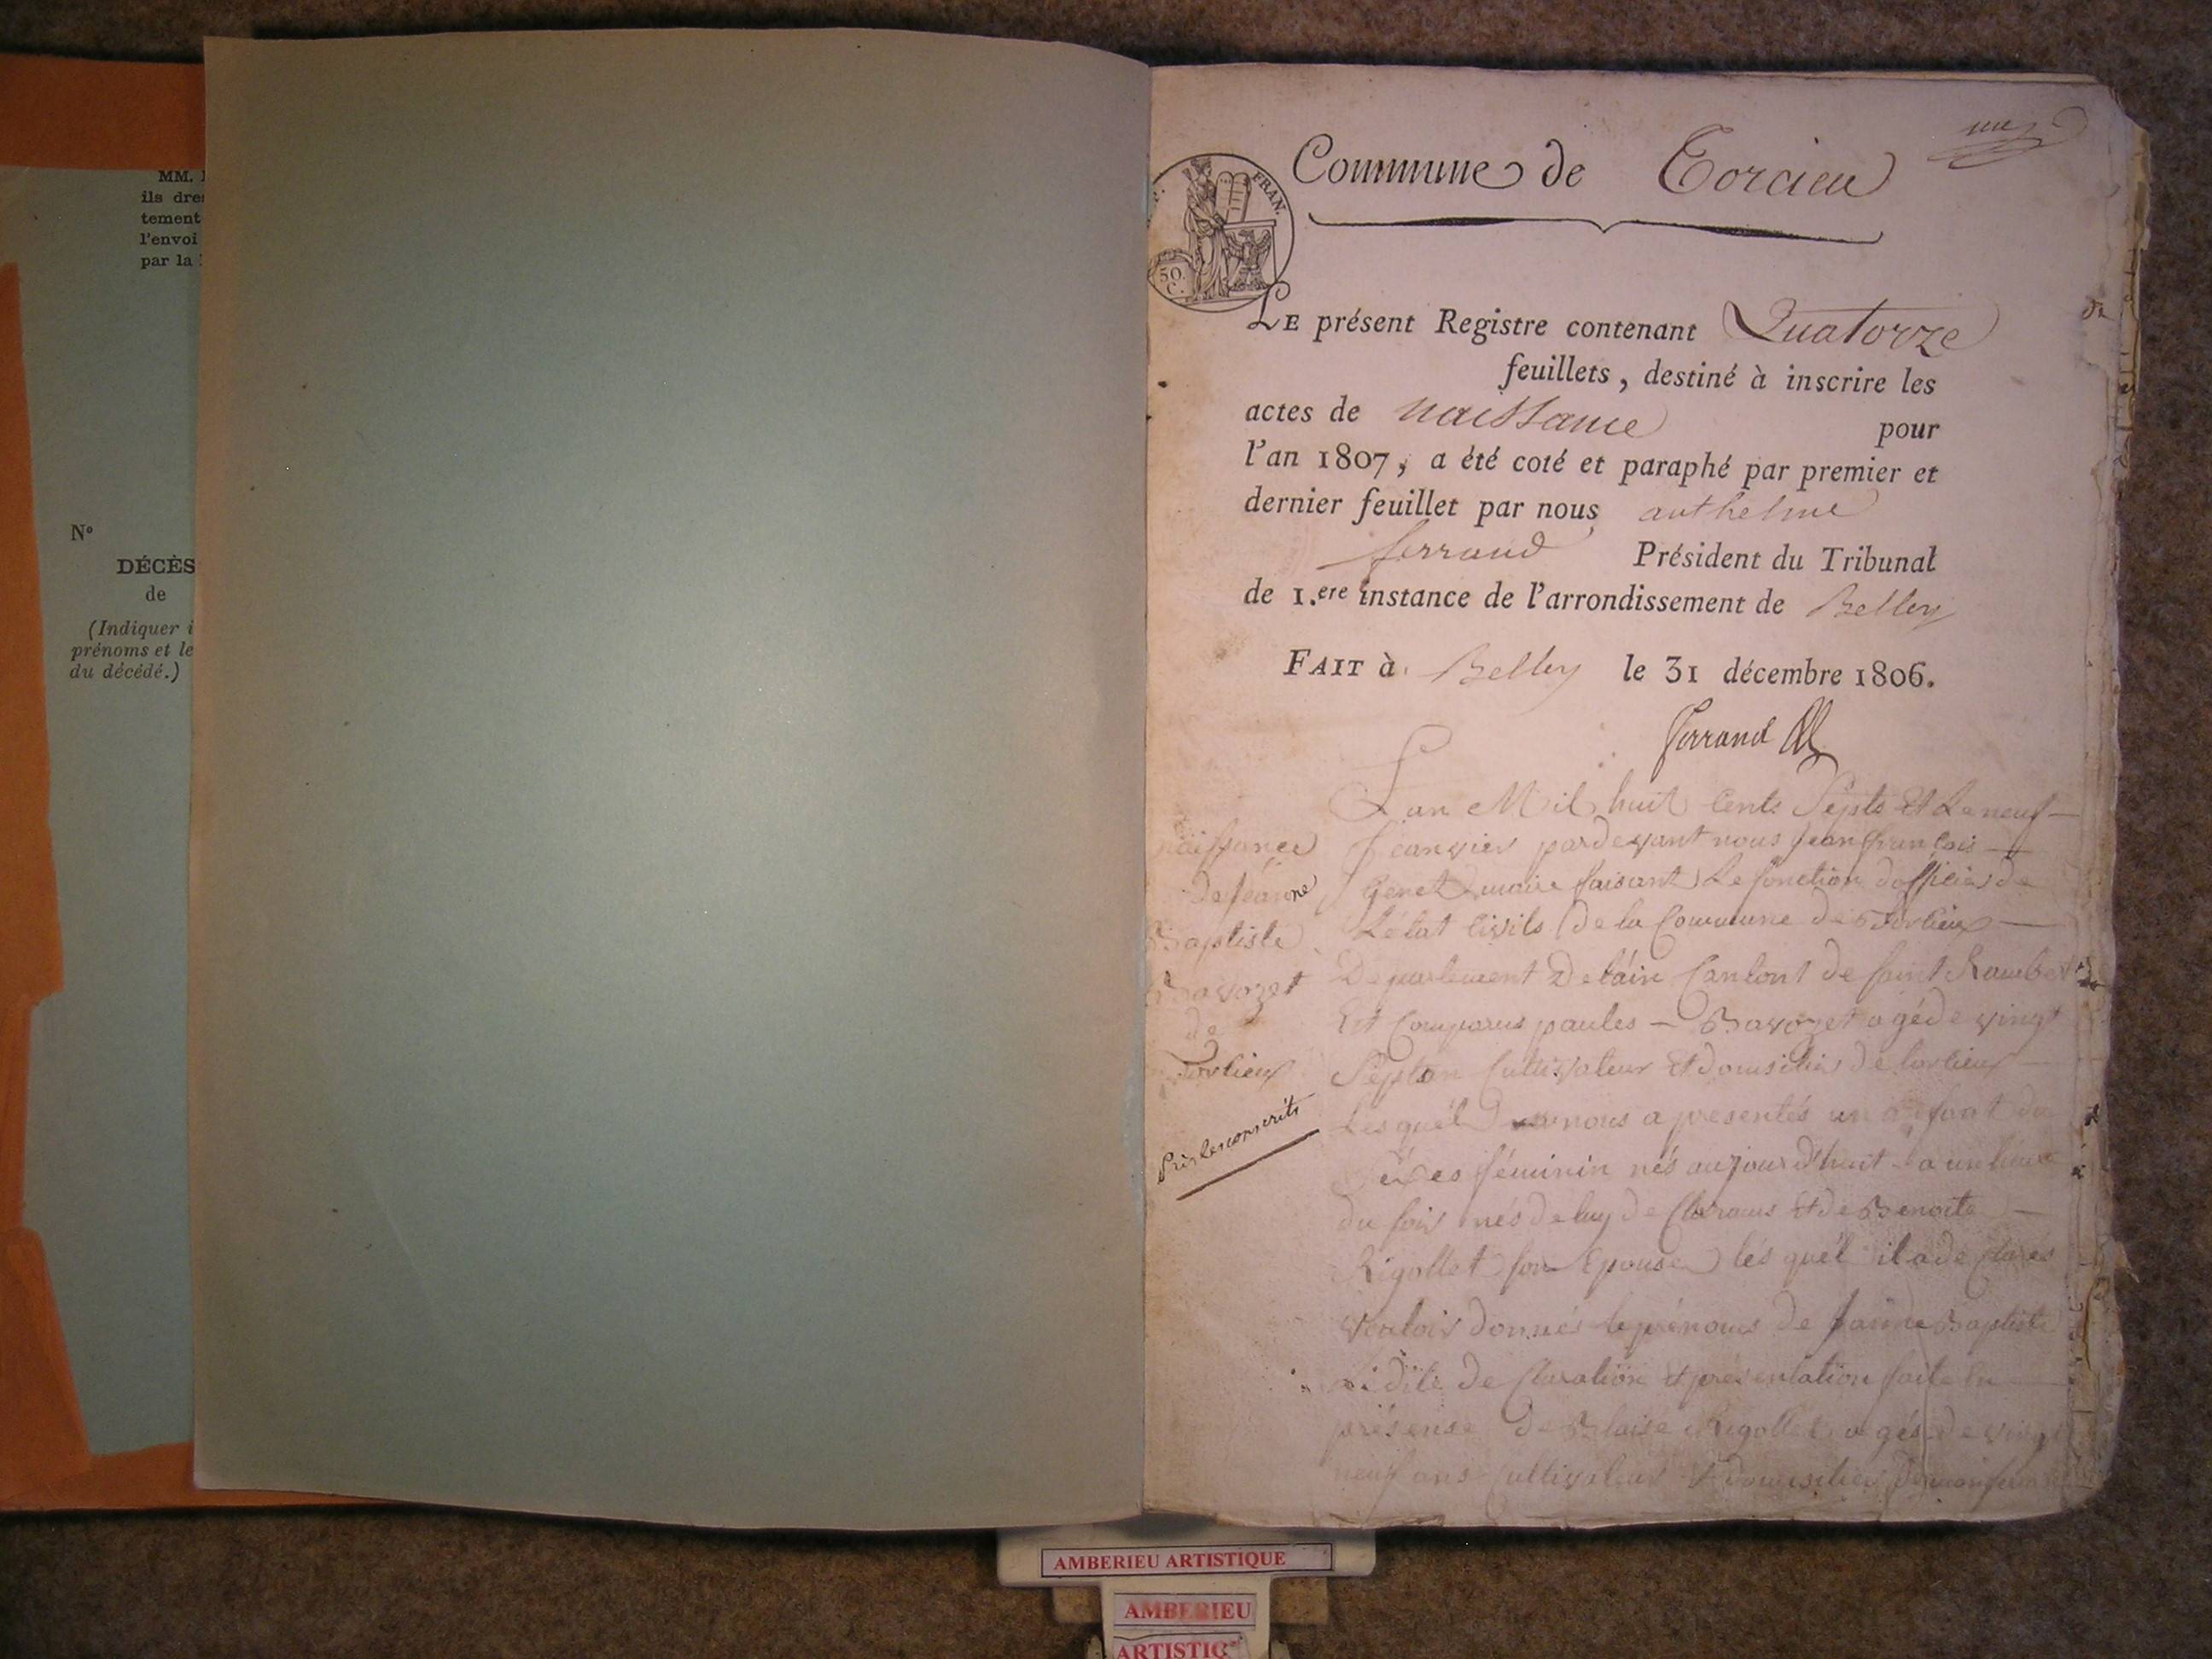 MM.
ils dre
tement
l'envoi
par la
N°
DÉCÈS
de
(Indiquer i
prénoms et le
du décédé.)
un
Commune de Torcieu
FRAN.
50
C.
LE présent Registre contenant Quatorze
feuillets, destiné à inscrire les
actes de naissance pour
l'an 1807, a été coté et paraphé par premier et
dernier feuillet par nous anthelme
ferrand Président du Tribunal
de 1.ere instance de l'arrondissement de Belley
FAIT à Belley le 31 décembre 1806.
Ferrand
Lan Mil huit Cents Septs Et Le neuf
Jeanvier pardevant nous Jean francois
Genet maire faisant Le fonction dofficier de
Létat Civils de la Commune de Torlieux
Departement Delain Cantont de saint Rambert
Est Comparus paules Bavozet agé de vingt
Septan Cultivateur Et domicilies de torlieux
Lesquel nous a presentés un anfant du
séxes féminin nés aujourd'huit a un heure
du soir nés de luy de Clarans Et de Benoite
Rigollet son Epouse lesquél il a de Clarés
vouloir donnés le prénoms de Jeanne Baptiste
dite de Claration Et présentation faite En
présense de Blaise Rigollet agés de vingt
neuf ans Cultivateur Et domicilies
naissance
de Jeanne
Baptiste
Bavozet
de
Torlieux